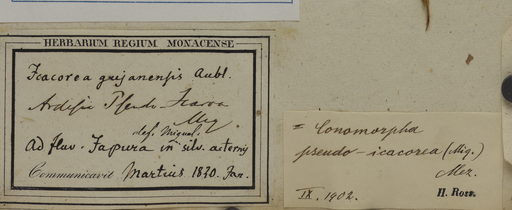 HERBARIUM REGIUM MONACENSE
Icacorea guijanensis Aubl.
Ardisia Pseudo-Icacorea
Miq
def. Miquel.
Ad fluv. Japura in silv. aeternis
Communicavit Martius 1870. Jan.
= Conomorpha
pseudo-icacorea (Miq.)
Mez.
IX. 1902.
H. Ross.